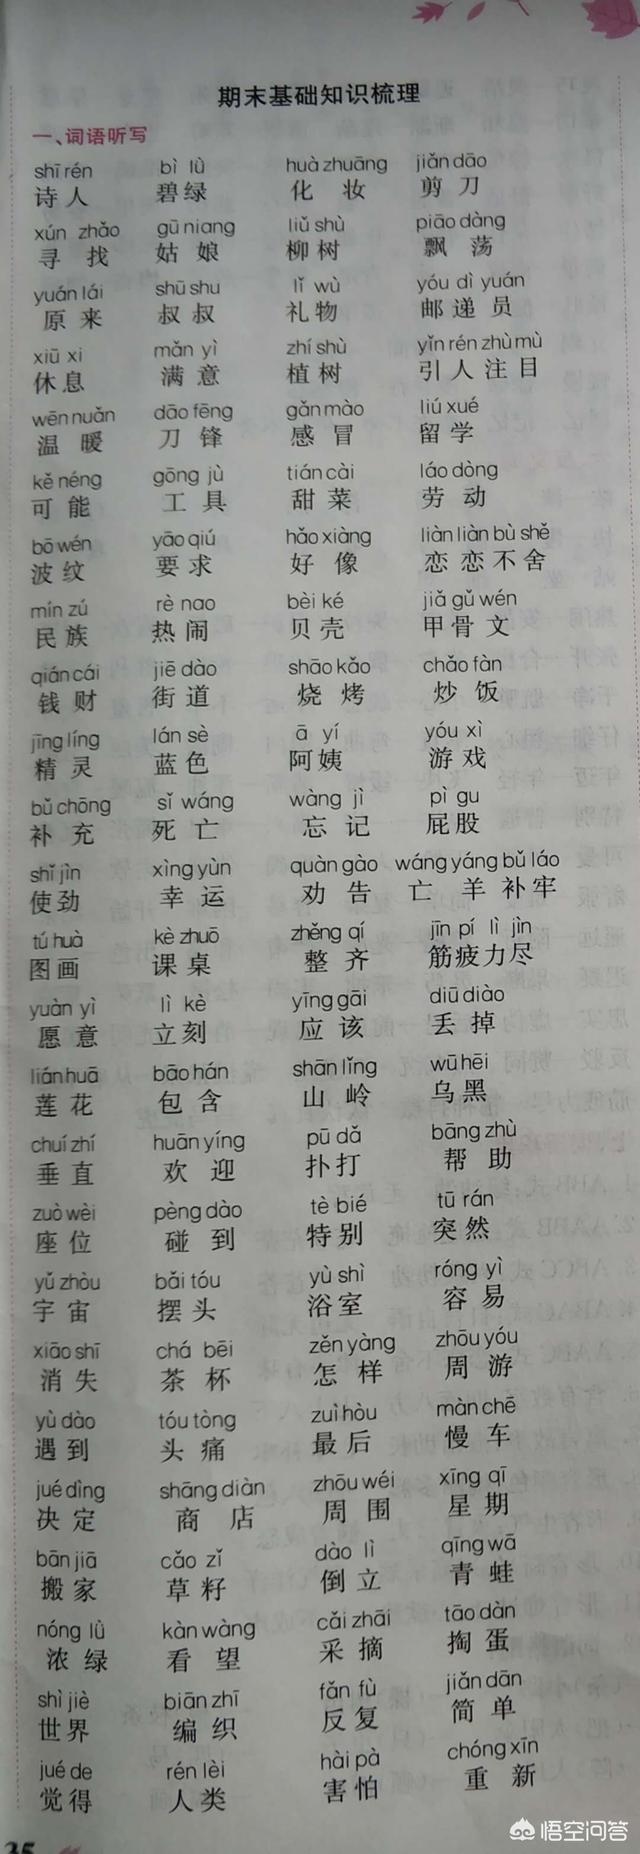 期末基础知识梳理
一、词语听写
shī rén bì lǜ huà zhuāng jiǎn dāo
诗人 碧绿 化妆 剪刀
xún zhǎo gū niang liǔ shù piāo dàng
寻找 姑娘 柳树 飘荡
yuán lái shū shu lǐ wù yóu dì yuán
原来 叔叔 礼物 邮递员
xiū xi mǎn yì zhí shù yǐn rén zhù mù
休息 满意 植树 引人注目
wēn nuǎn dāo fēng gǎn mào liú xué
温暖 刀锋 感冒 留学
kě néng gōng jù tián cài láo dòng
可能 工具 甜菜 劳动
bō wén yāo qiú hǎo xiàng liàn liàn bù shě
波纹 要求 好像 恋恋不舍
mín zú rè nao bèi ké jiǎ gǔ wén
民族 热闹 贝壳 甲骨文
qián cái jiē dào shāo kǎo chǎo fàn
钱财 街道 烧烤 炒饭
jīng líng lán sè ā yí yóu xì
精灵 蓝色 阿姨 游戏
bǔ chōng sǐ wáng wàng jì pì gu
补充 死亡 忘记 屁股
shǐ jìn xìng yùn quàn gào wáng yáng bǔ láo
使劲 幸运 劝告 亡羊补牢
tú huà kè zhuō zhěng qí jīn pí lì jìn
图画 课桌 整齐 筋疲力尽
yuàn yì lì kè yīng gāi diū diào
愿意 立刻 应该 丢掉
lián huā bāo hán shān lǐng wū hēi
莲花 包含 山岭 乌黑
chuí zhí huān yíng pū dǎ bāng zhù
垂直 欢迎 扑打 帮助
zuò wèi pèng dào tè bié tū rán
座位 碰到 特别 突然
yǔ zhòu bǎi tóu yù shì róng yì
宇宙 摆头 浴室 容易
xiāo shī chá bēi zěn yàng zhōu yóu
消失 茶杯 怎样 周游
yù dào tóu tòng zuì hòu màn chē
遇到 头痛 最后 慢车
jué dìng shāng diàn zhōu wéi xīng qī
决定 商店 周围 星期
bān jiā cǎo zǐ dào lì qīng wā
搬家 草籽 倒立 青蛙
nóng lǜ kàn wàng cǎi zhāi tāo dàn
浓绿 看望 采摘 掏蛋
shì jiè biān zhī fǎn fù jiǎn dān
世界 编织 反复 简单
jué de rén lèi hài pà chóng xīn
觉得 人类 害怕 重新
悟空问答